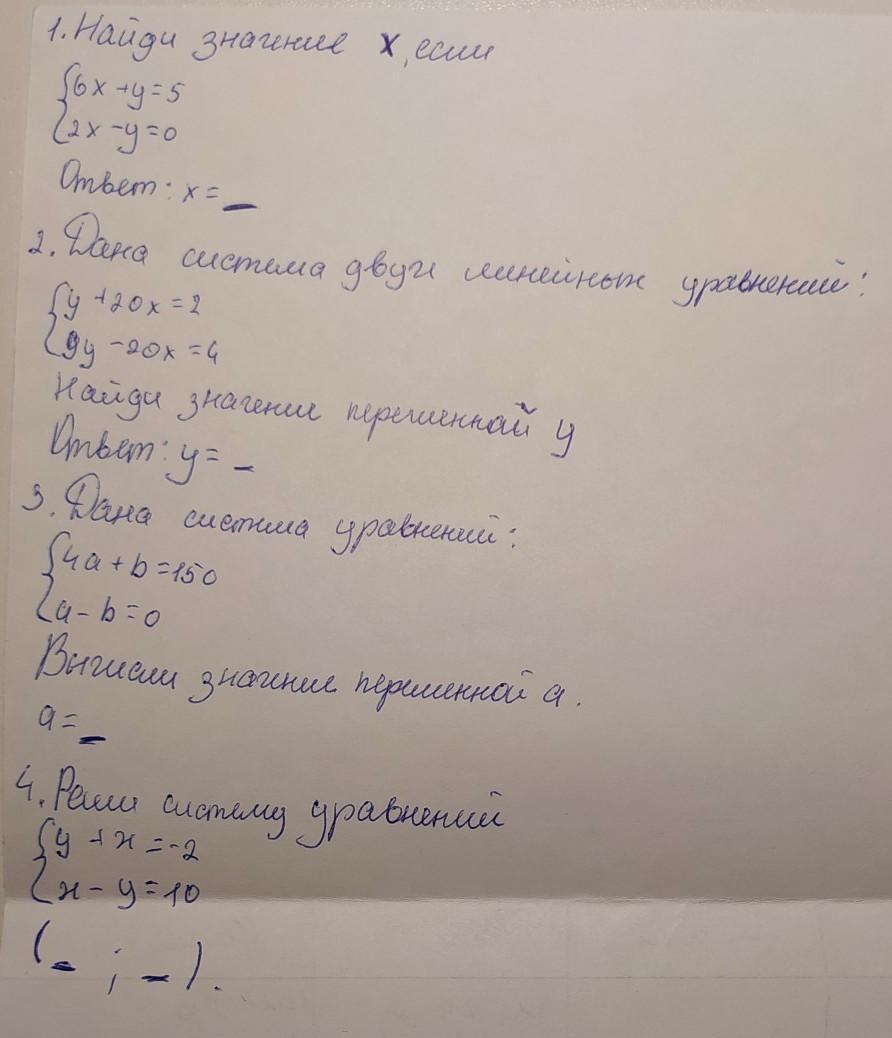 1. Найди значение x, если
{6x + y = 5
{2x - y = 0
Ответ: x = _
2. Дана система двух линейных уравнений:
{y + 20x = 2
{9y - 20x = 4
Найди значение переменной y
Ответ: y = _
3. Дана система уравнений:
{4a + b = 150
{a - b = 0
Вычисли значение переменной a.
a = _
4. Реши систему уравнений
{y + x = -2
{x - y = 10
(_ ; _).